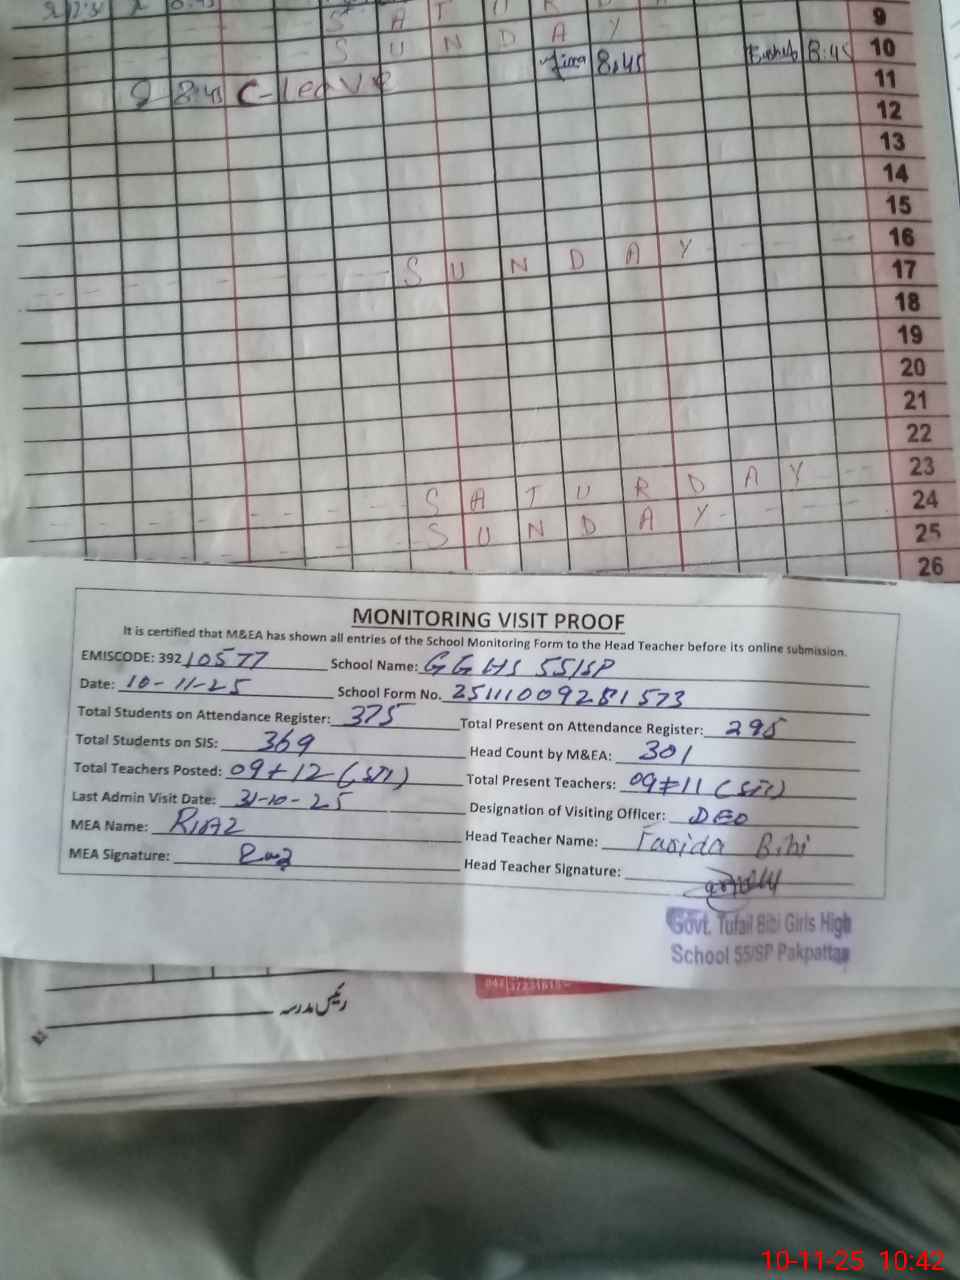 S A T U R D A 9
S U N D A Y 10
8:45 C-Leave 8:45 8:45 11
12
13
14
15
16
S U N D A Y 17
18
19
20
21
22
23
S A T U R D A Y 24
S U N D A Y 25
26
MONITORING VISIT PROOF
It is certified that M&EA has shown all entries of the School Monitoring Form to the Head Teacher before its online submission.
EMISCODE: 392 10577 School Name: GGHS 55/SP
Date: 10-11-25 School Form No. 25111009281573
Total Students on Attendance Register: 375 Total Present on Attendance Register: 295
Total Students on SIS: 369 Head Count by M&EA: 301
Total Teachers Posted: 09+12 (STI) Total Present Teachers: 09+11 (STI)
Last Admin Visit Date: 31-10-25 Designation of Visiting Officer: DEO
MEA Name: RIAZ Head Teacher Name: Farida Bibi
MEA Signature: Head Teacher Signature:
Govt. Tufail Bibi Girls High
School 55/SP Pakpattan
رئیس مدرسہ
10-11-25 10:42